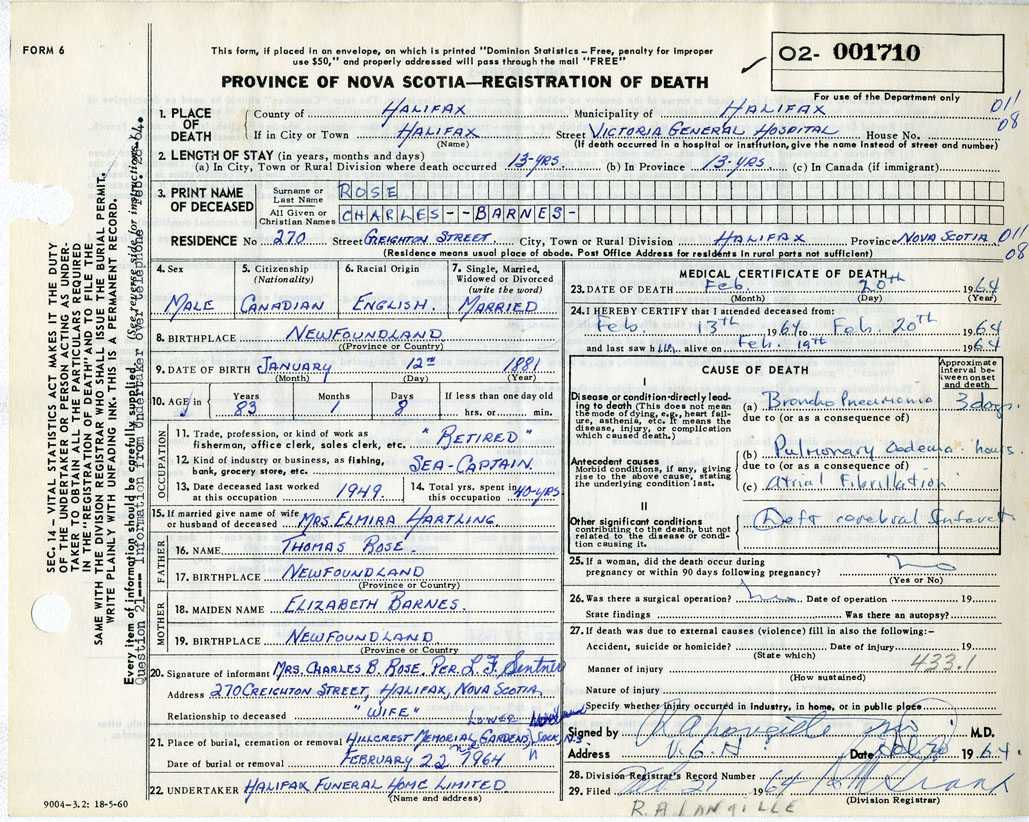 FORM 6
This form, if placed in an envelope, on which is printed "Dominion Statistics—Free, penalty for improper
use $50," and properly addressed will pass through the mail "FREE"
O2- 001710
PROVINCE OF NOVA SCOTIA—REGISTRATION OF DEATH
For use of the Department only
011
08
1. PLACE OF DEATH
County of HALIFAX Municipality of HALIFAX
If in City or Town HALIFAX Street VICTORIA GENERAL HOSPITAL House No.
(Name) (If death occurred in a hospital or institution, give the name instead of street and number)
2. LENGTH OF STAY (in years, months and days)
(a) In City, Town or Rural Division where death occurred 13-YRS. (b) In Province 13-YRS. (c) In Canada (if immigrant)
3. PRINT NAME OF DECEASED
Surname or Last Name ROSE
All Given or Christian Names CHARLES--BARNES-
RESIDENCE No 270 Street CREIGHTON STREET. City, Town or Rural Division HALIFAX Province NOVA SCOTIA
011
08
(Residence means usual place of abode. Post Office Address for residents in rural parts not sufficient)
SEC. 14 – VITAL STATISTICS ACT MAKES IT THE DUTY
OF THE UNDERTAKER OR PERSON ACTING AS UNDER-
TAKER TO OBTAIN ALL THE PARTICULARS REQUIRED
IN THE "REGISTRATION OF DEATH" AND TO FILE THE
SAME WITH THE DIVISION REGISTRAR WHO SHALL ISSUE THE BURIAL PERMIT.
WRITE PLAINLY WITH UNFADING INK. THIS IS A PERMANENT RECORD.
Every item of information should be carefully supplied. (See reverse side for instructions.)
Question 21--- Information from undertaker over telephone Feb. 64.
4. Sex
MALE
5. Citizenship
(Nationality)
CANADIAN
6. Racial Origin
ENGLISH.
7. Single, Married,
Widowed or Divorced
(write the word)
MARRIED
8. BIRTHPLACE NEWFOUNDLAND
(Province or Country)
9. DATE OF BIRTH JANUARY 12TH 1881
(Month) (Day) (Year)
10. AGE in Years Months Days If less than one day old
83 1 8 hrs. or min.
OCCUPATION
11. Trade, profession, or kind of work as
fisherman, office clerk, sales clerk, etc. "RETIRED"
12. Kind of industry or business, as fishing,
bank, grocery store, etc. SEA-CAPTAIN.
13. Date deceased last worked
at this occupation 1949.
14. Total yrs. spent in
this occupation 40-YRS
15. If married give name of wife
or husband of deceased MRS. ELMIRA HARTLING
FATHER
16. NAME THOMAS ROSE.
17. BIRTHPLACE NEWFOUNDLAND
(Province or Country)
MOTHER
18. MAIDEN NAME ELIZABETH BARNES.
19. BIRTHPLACE NEWFOUNDLAND
(Province or Country
20. Signature of informant MRS. CHARLES B. ROSE. PER. L. F.
Address 270 CREIGHTON STREET, HALIFAX, NOVA SCOTIA,
Relationship to deceased "WIFE"
LOWER
21. Place of burial, cremation or removal HILLCREST MEMORIAL GARDENS, SACK, N.S.
Date of burial or removal FEBRUARY 22ND 1964
22. UNDERTAKER HALIFAX FUNERAL HOME LIMITED
(Name and address)
9004–3.2: 18-5-60
MEDICAL CERTIFICATE OF DEATH
23. DATE OF DEATH Feb. 20th 1964
(Month) (Day) (Year)
24. I HEREBY CERTIFY that I attended deceased from:
Feb. 13th 1964 to Feb. 20th 1964
and last saw him alive on Feb. 19th 1964
CAUSE OF DEATH
Approximate
interval be-
tween onset
and death
I
Disease or condition-directly lead-
ing to death (This does not mean
the mode of dying, e.g., heart fail-
ure, asthenia, etc. It means the
disease, injury, or complication
which caused death.)
(a) Broncho Pneumonia 3 days
due to (or as a consequence of)
Antecedent causes
Morbid conditions, if any, giving
rise to the above cause, stating
the underlying condition last.
(b) Pulmonary Oedema hours
due to (or as a consequence of)
(c) Atrial Fibrillation
II
Other significant conditions
contributing to the death, but not
related to the disease or condi-
tion causing it.
Left cerebral Infarct
25. If a woman, did the death occur during
pregnancy or within 90 days following pregnancy? no
(Yes or No)
26. Was there a surgical operation? no Date of operation 19
State findings Was there an autopsy?
27. If death was due to external causes (violence) fill in also the following:–
Accident, suicide or homicide? Date of injury 19
(State which)
433.1
Manner of injury
(How sustained)
Nature of injury
Specify whether injury occurred in industry, in home, or in public place
Signed by M.D.
Address V.G.H Date Feb 20 1964.
28. Division Registrar's Record Number
29. Filed Feb 21 1964
(Division Registrar)
R.A LANGILLE